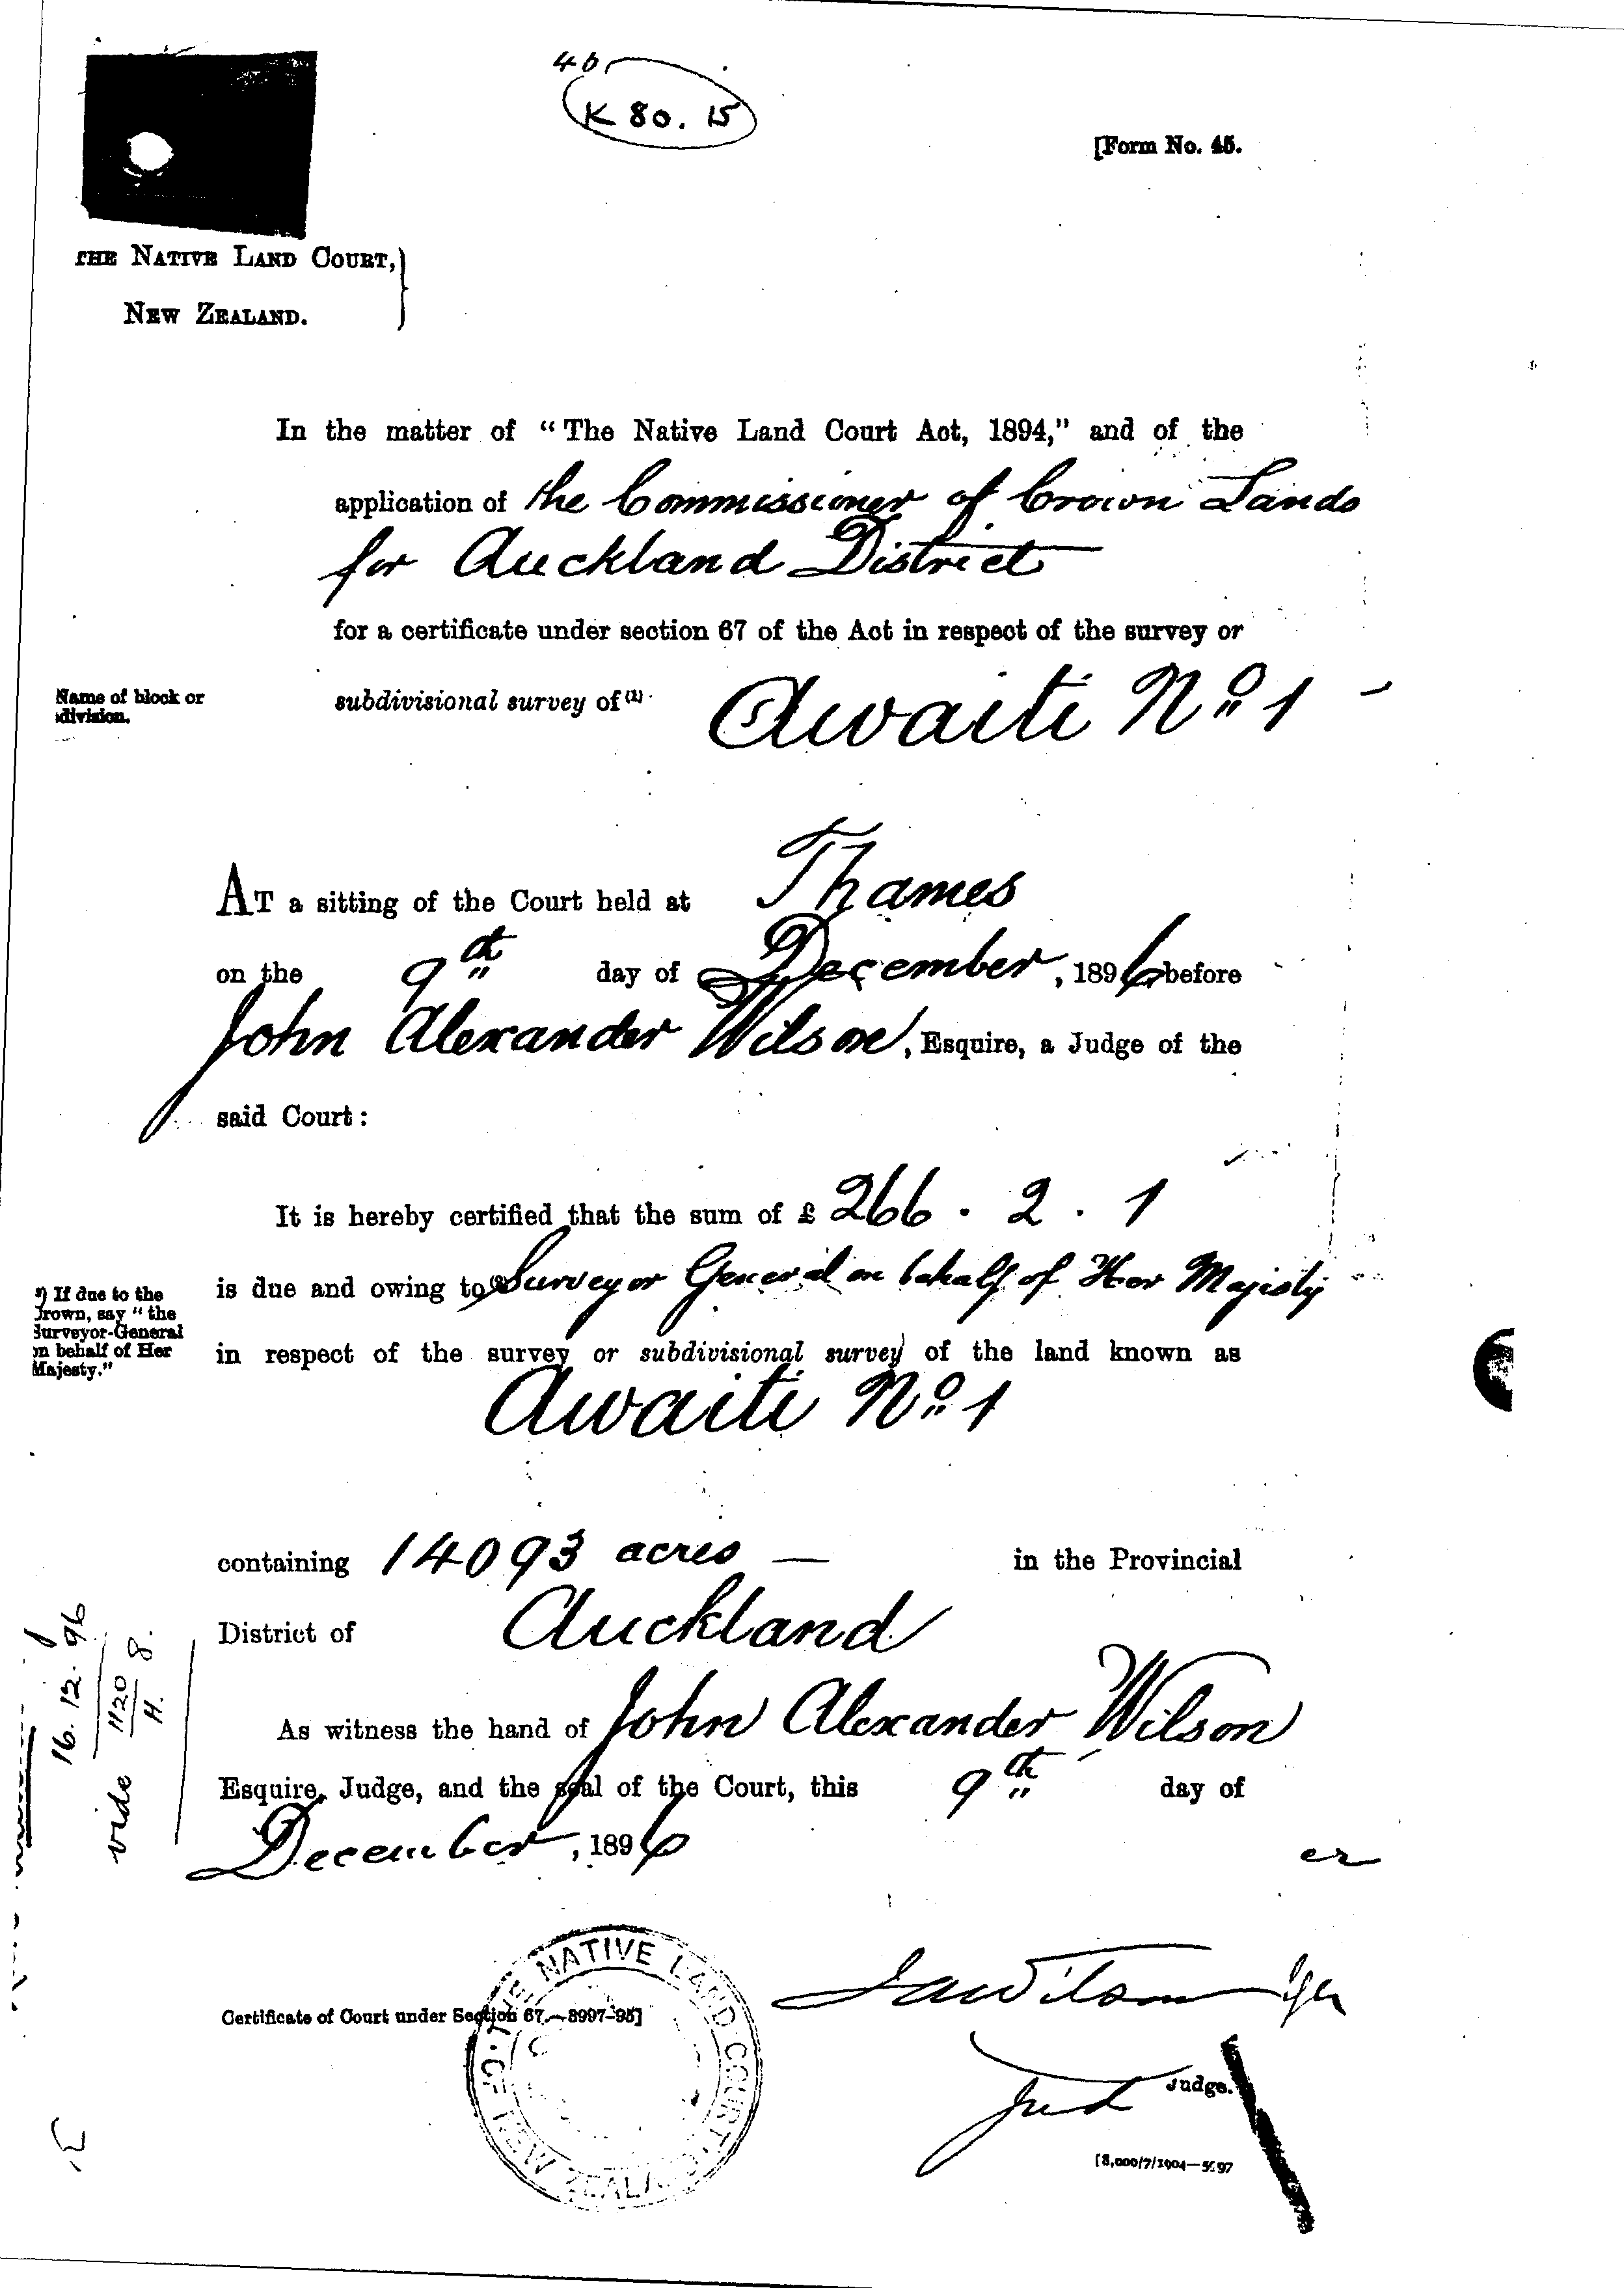 4b
K 80. 15
[Form No. 45.
THE NATIVE LAND COURT,
NEW ZEALAND.
In the matter of "The Native Land Court Act, 1894," and of the
application of the Commissioner of Crown Lands
for Auckland District
for a certificate under section 67 of the Act in respect of the survey or
Name of block or
division.
subdivisional survey of (1) Awaiti No. 1
AT a sitting of the Court held at Thames
on the 9th day of December, 1896 before
John Alexander Wilson, Esquire, a Judge of the
said Court:
It is hereby certified that the sum of £ 266 . 2 . 1
is due and owing to (2) Surveyor General on behalf of Her Majesty
2) If due to the
Crown, say "the
Surveyor-General
on behalf of Her
Majesty."
in respect of the survey or subdivisional survey of the land known as
Awaiti No. 1
containing 14093 acres — in the Provincial
District of Auckland
As witness the hand of John Alexander Wilson
Esquire, Judge, and the seal of the Court, this 9th day of
December, 1896
16. 12. 96
vide 1120 8.
H.
JAWilson
Certificate of Court under Section 67.—3997-95]
THE NATIVE LAND COURT OF NEW ZEALAND
Judge.
[8,000/7/1904—5597